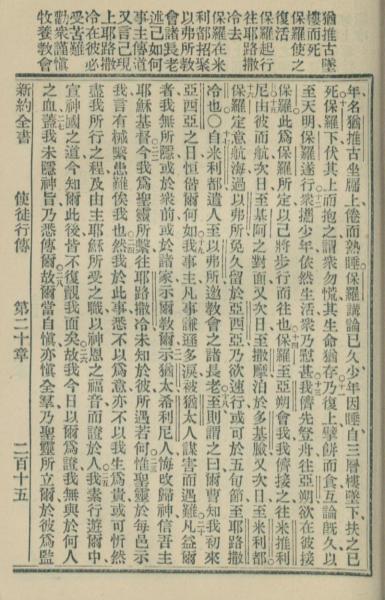 猶推古墜
樓而死
保羅使之
復活
保羅起行
往耶路撒
冷去
保羅在米
利都招聚
以弗所教
會諸長老
述己如何
事主傳道
又言己現
上耶路撒
冷在彼必
受苦難
勸眾謹慎
牧養教會
年名猶推古坐牖上倦而熟睡保羅講論已久少年因睡自三層樓墜下扶之已
死保羅下伏其上而抱之謂眾勿慌其生命猶存乃復上擘餅而食互論既久以
至天明保羅遂行眾攜少年依然生活眾乃慰甚我儕先登舟往亞朔欲在彼接
保羅此為保羅所定以己將步行而往也保羅至亞朔會我我儕接之往來推利
尼由彼而航次日至基阿之對面又次日至撒摩泊於多基臘又次日至米利都
保羅定意航海過以弗所免久留於亞西亞乃欲速行或可於五旬節至耶路撒
冷也○自米利都遣人至以弗所邀教會之諸長老至則謂之曰爾曹知我初來
亞西亞之日恒偕爾何如我事主凡事謙遜多淚被猶太人謀害而遇難凡益爾
者我無所隱或於眾前或於諸家示爾教爾示猶太希利尼人悔改歸神信吾主
耶穌基督今我為聖靈所繫往耶路撒冷未知於彼所遇若何惟聖靈於每邑示
我言有械繫患難俟我也然我於此事悉不以為意亦不以我生為貴或可忻然
盡我所行之程及由主耶穌所受之職以神恩之福音而證於人我素行遊爾中
宣神國之道今知爾此後皆不復覿我面矣故我今日以爾為證我無與於何人
之血蓋我未隱神旨乃悉傳爾故爾當自慎亦慎全羣乃聖靈所立爾於彼為監
新約全書 使徒行傳 第二十章 二百十五